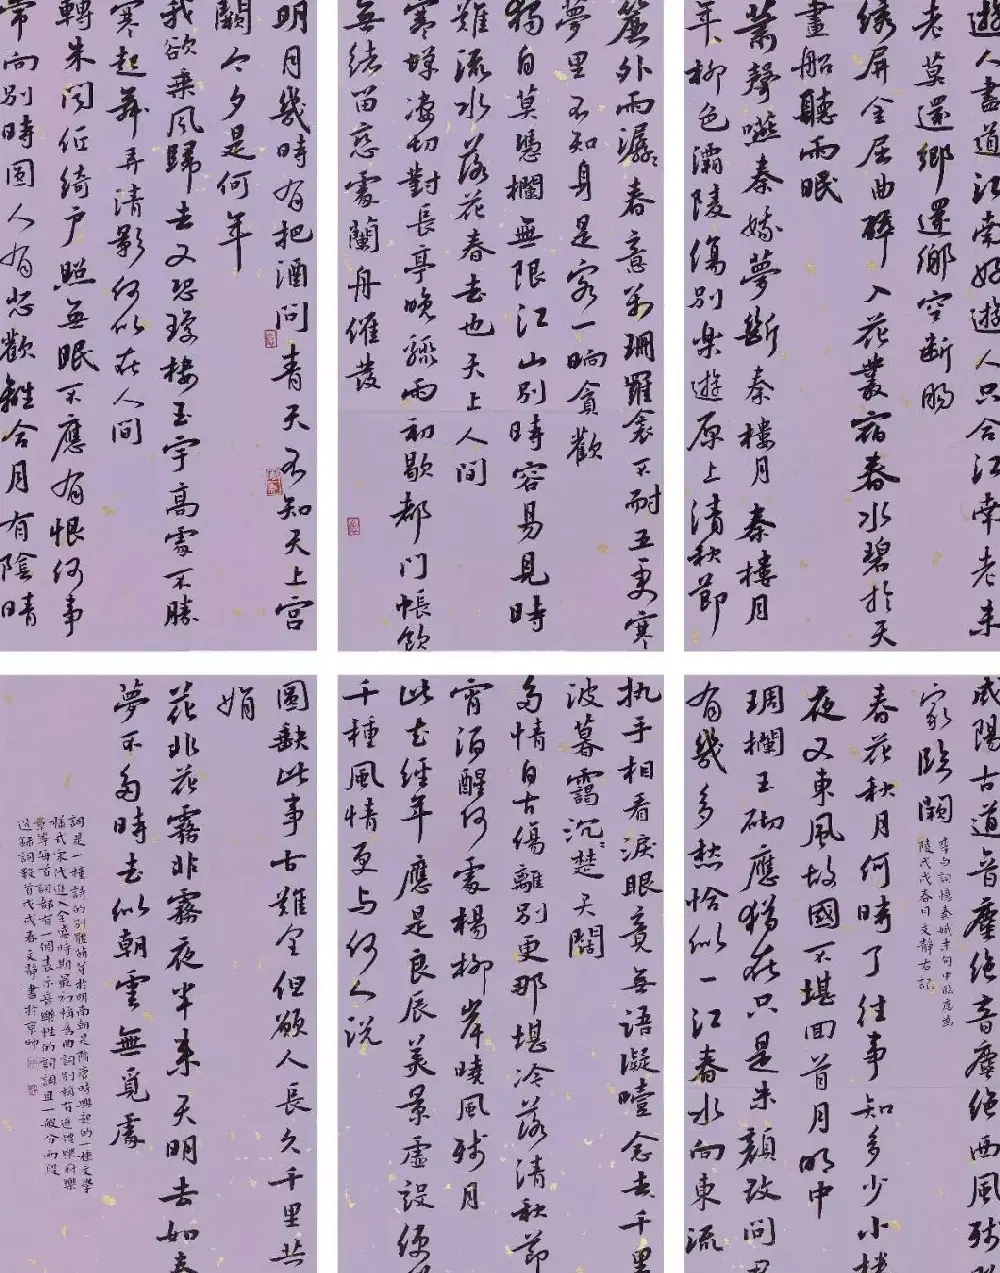 遊人盡道江南好遊人只合江南老未
老莫還鄉還鄉空斷腸
綉屏金屈曲醉入花叢宿春水碧於天
畫船聽雨眠
簫聲咽秦娥夢斷秦樓月秦樓月
年〻柳色灞陵傷別樂遊原上清秋節
咸陽古道音塵絕音塵絕西風殘
家臨闕
李白詞憶秦娥末句中臨應為
陵戊戌春日文靜右記
春花秋月何時了往事知多少小樓
夜又東風故國不堪回首月明中
琱欄玉砌應猶在只是朱顏改問君
有幾多愁恰似一江春水向東流
簾外雨潺〻春意闌珊羅衾不耐五更寒
夢里不知身是客一晌貪歡
獨自莫憑欄無限江山別時容易見時
難流水落花春去也天上人間
寒蟬淒切對長亭晚驟雨初歇都門帳飲
無緒留戀處蘭舟催發
執手相看淚眼竟無語凝噎念去千里
波暮靄沉〻楚天闊
多情自古傷離別更那堪冷落清秋節
宵酒醒何處楊柳岸曉風殘月
此去經年應是良辰美景虛設便
千種風情更與何人說
明月幾時有把酒問青天不知天上宮
闕今夕是何年
我欲乘風歸去又恐瓊樓玉宇高處不勝
寒起舞弄清影何似在人間
轉朱閣低綺户照無眠不應有恨何事
常向別時圓人有悲歡離合月有陰晴
圓缺此事古難全但願人長久千里共
娟
花非花霧非霧夜半來天明去如春
夢不多時去似朝雲無覓處
詞是一種詩的別體萌芽於明南朝是隋唐時興起的一種文學
樣式宋代進入全盛時期最初稱爲曲詞別稱有近體樂府樂
章等每首詞都有一個表示音樂性的詞調且一般分兩段
選錄詞數首戊戌春文靜書於京師